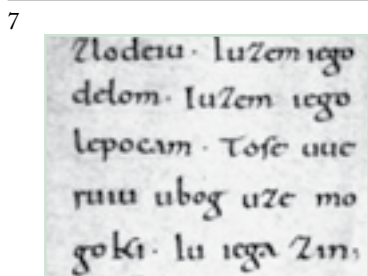 7
Zlodeiu · Iu Zem iego
delom · Iu Zem iego
lepocam · Tose uue
ruiu ubog uZe mo
goki · Iu iega Zin,